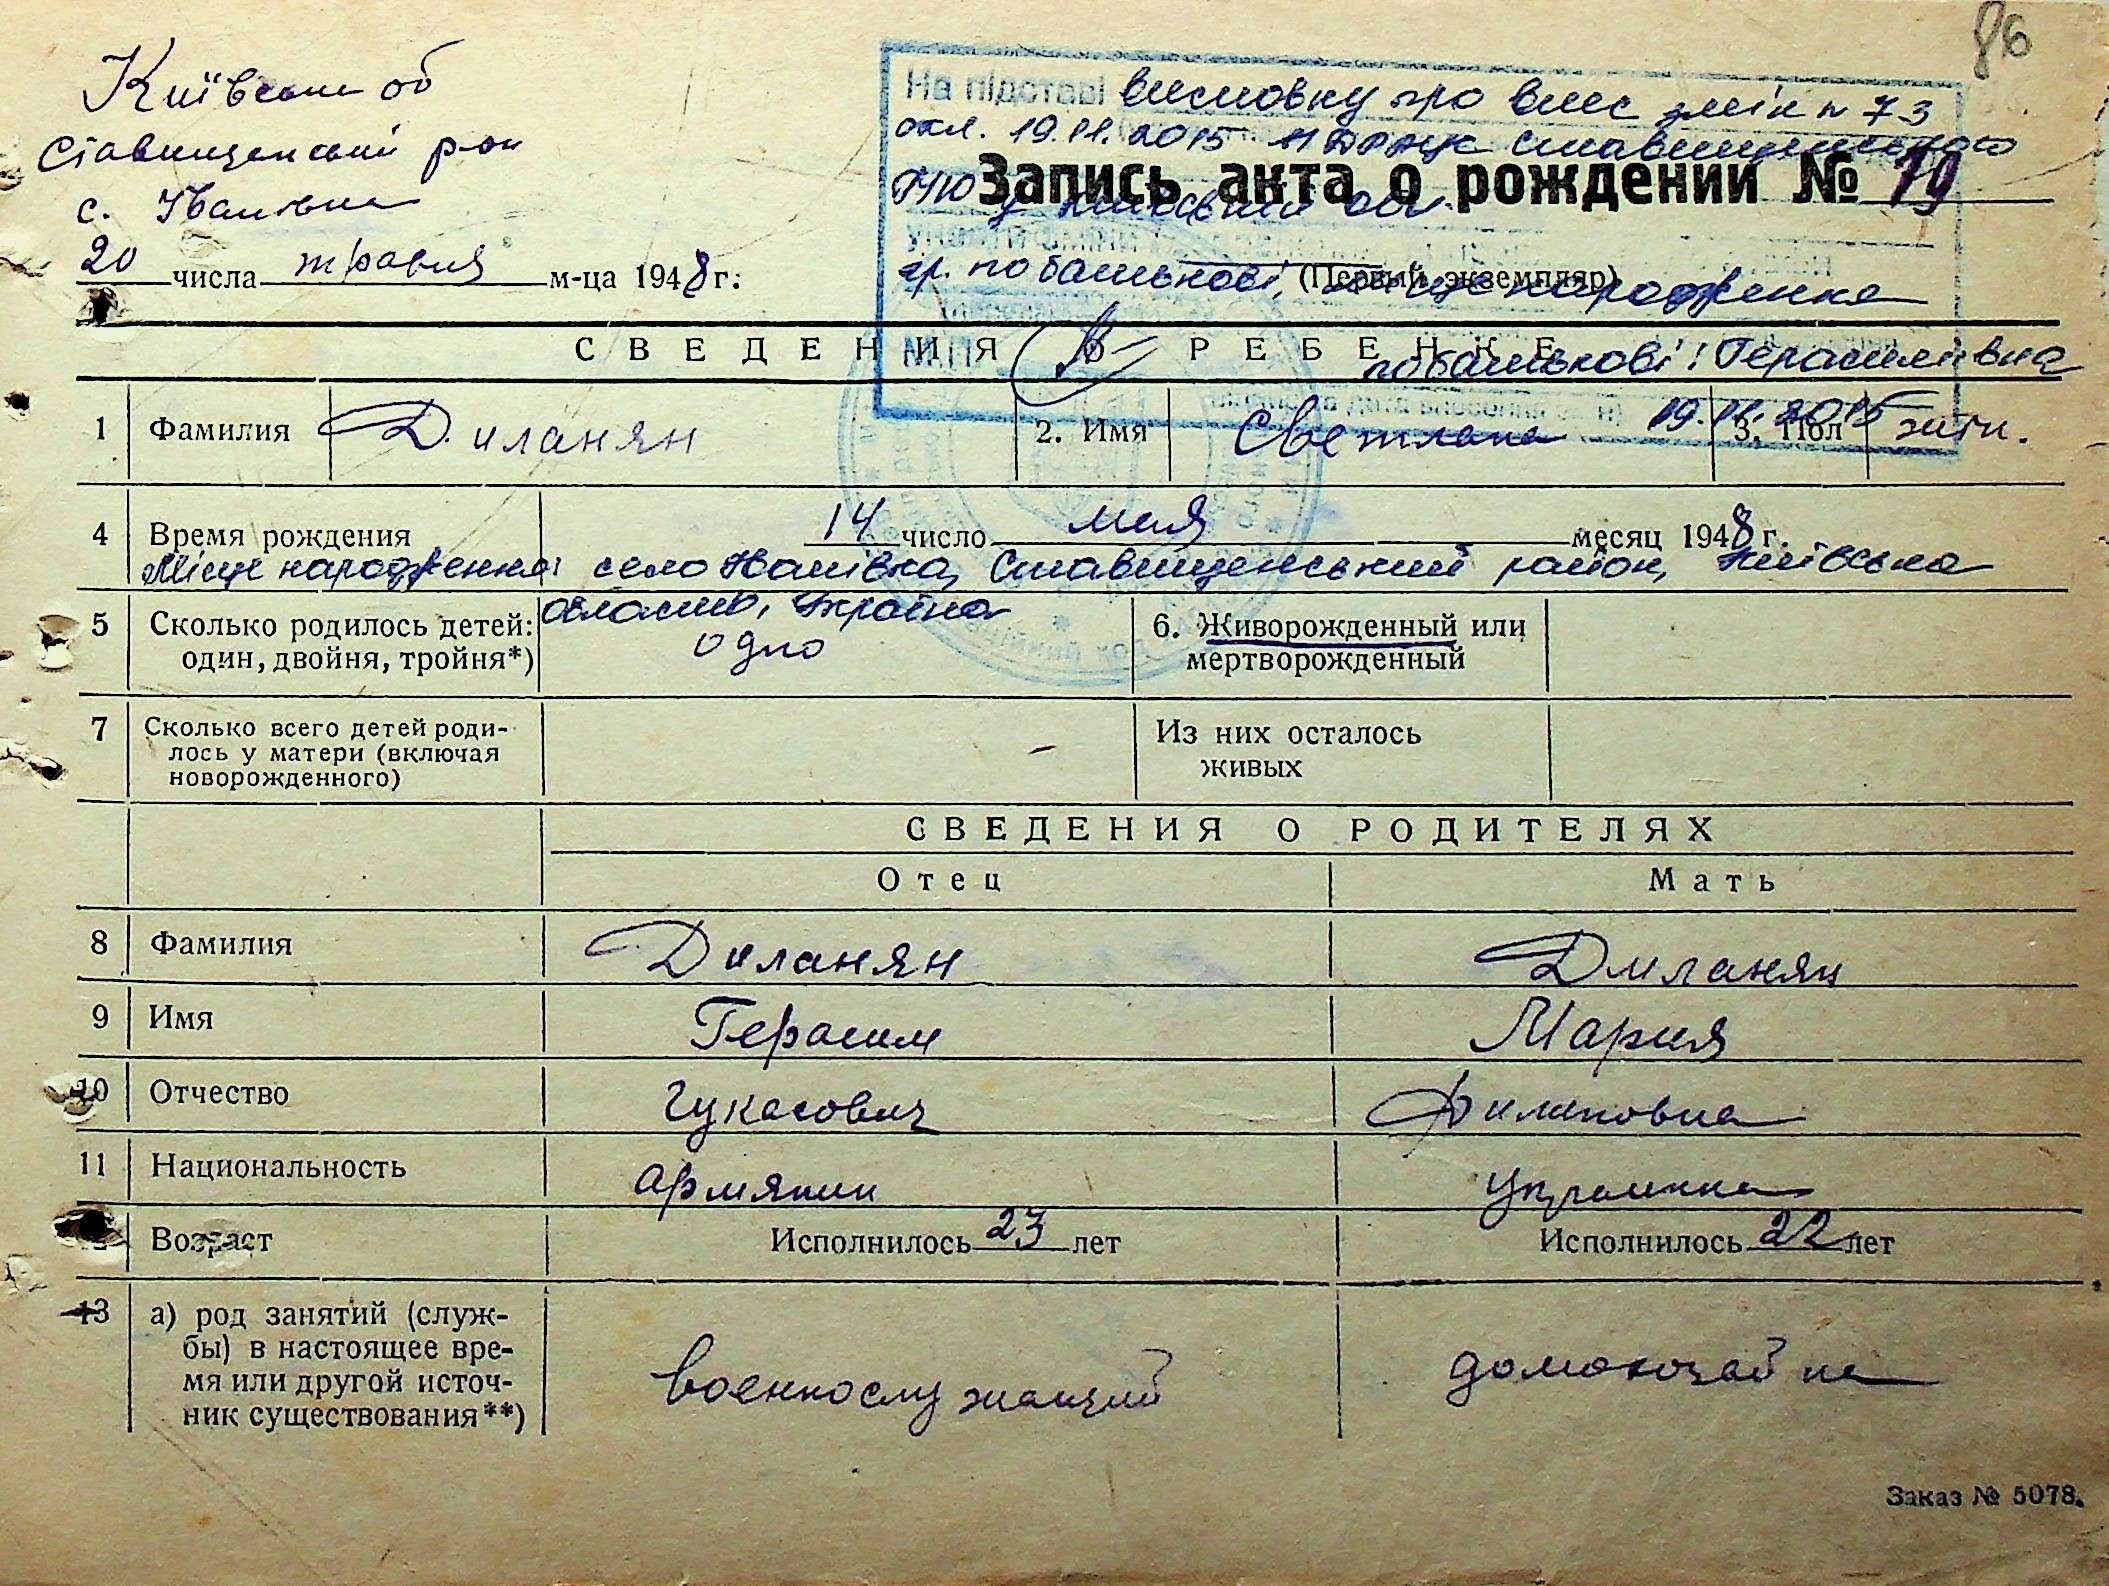 86
Київська об
Ставищенський р-он
с. Іванівка
20 числа травня м-ца 1948 г.
На підставі висновку про внес змін № 73
19.11.2015 Ставищенського
Запись акта о рождении № 19
(Первый экземпляр)
гр. по батькові, народження
СВЕДЕНИЯ О РЕБЕНКЕ
по батькові: Герасимівна
19.11.2015
1 Фамилия Диланян 2. Имя Светлана 3. Пол жен.
4 Время рождения 14 число мая месяц 1948 г.
Місце народження: село Іванівка, Ставищенський район, Київська
область, Україна
5 Сколько родилось детей: один, двойня, тройня*) одно 6. Живорожденный или мертворожденный
7 Сколько всего детей родилось у матери (включая новорожденного) – Из них осталось живых
СВЕДЕНИЯ О РОДИТЕЛЯХ
Отец Мать
8 Фамилия Диланян Диланян
9 Имя Герасим Мария
10 Отчество Гукасович Филиповна
11 Национальность армянин украинка
Возраст Исполнилось 23 лет Исполнилось 22 лет
13 а) род занятий (служ-
бы) в настоящее вре-
мя или другой источ-
ник существования**) военнослужащий домохозяйка
Заказ № 5078.